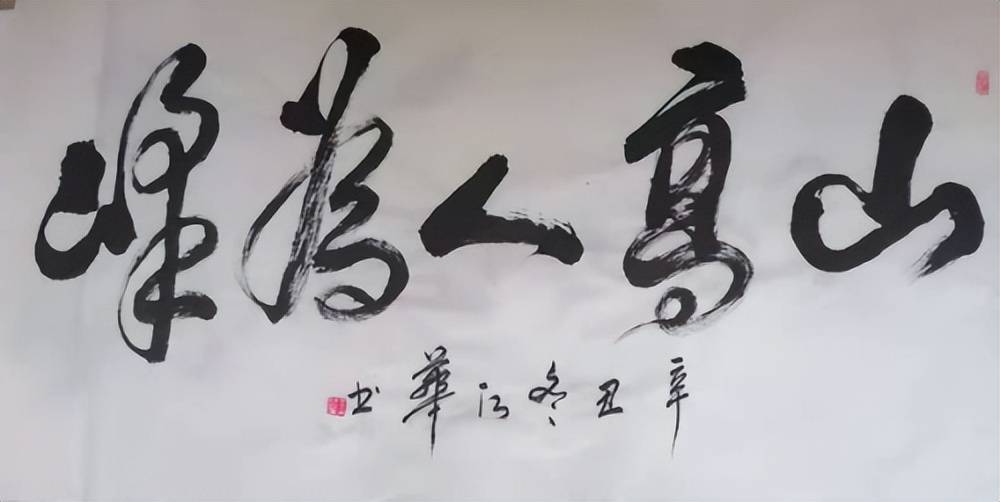 山高人为峰
辛丑冬江華书